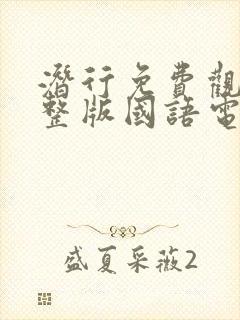 潛行免費觀
整版國語電
盛夏采薇2